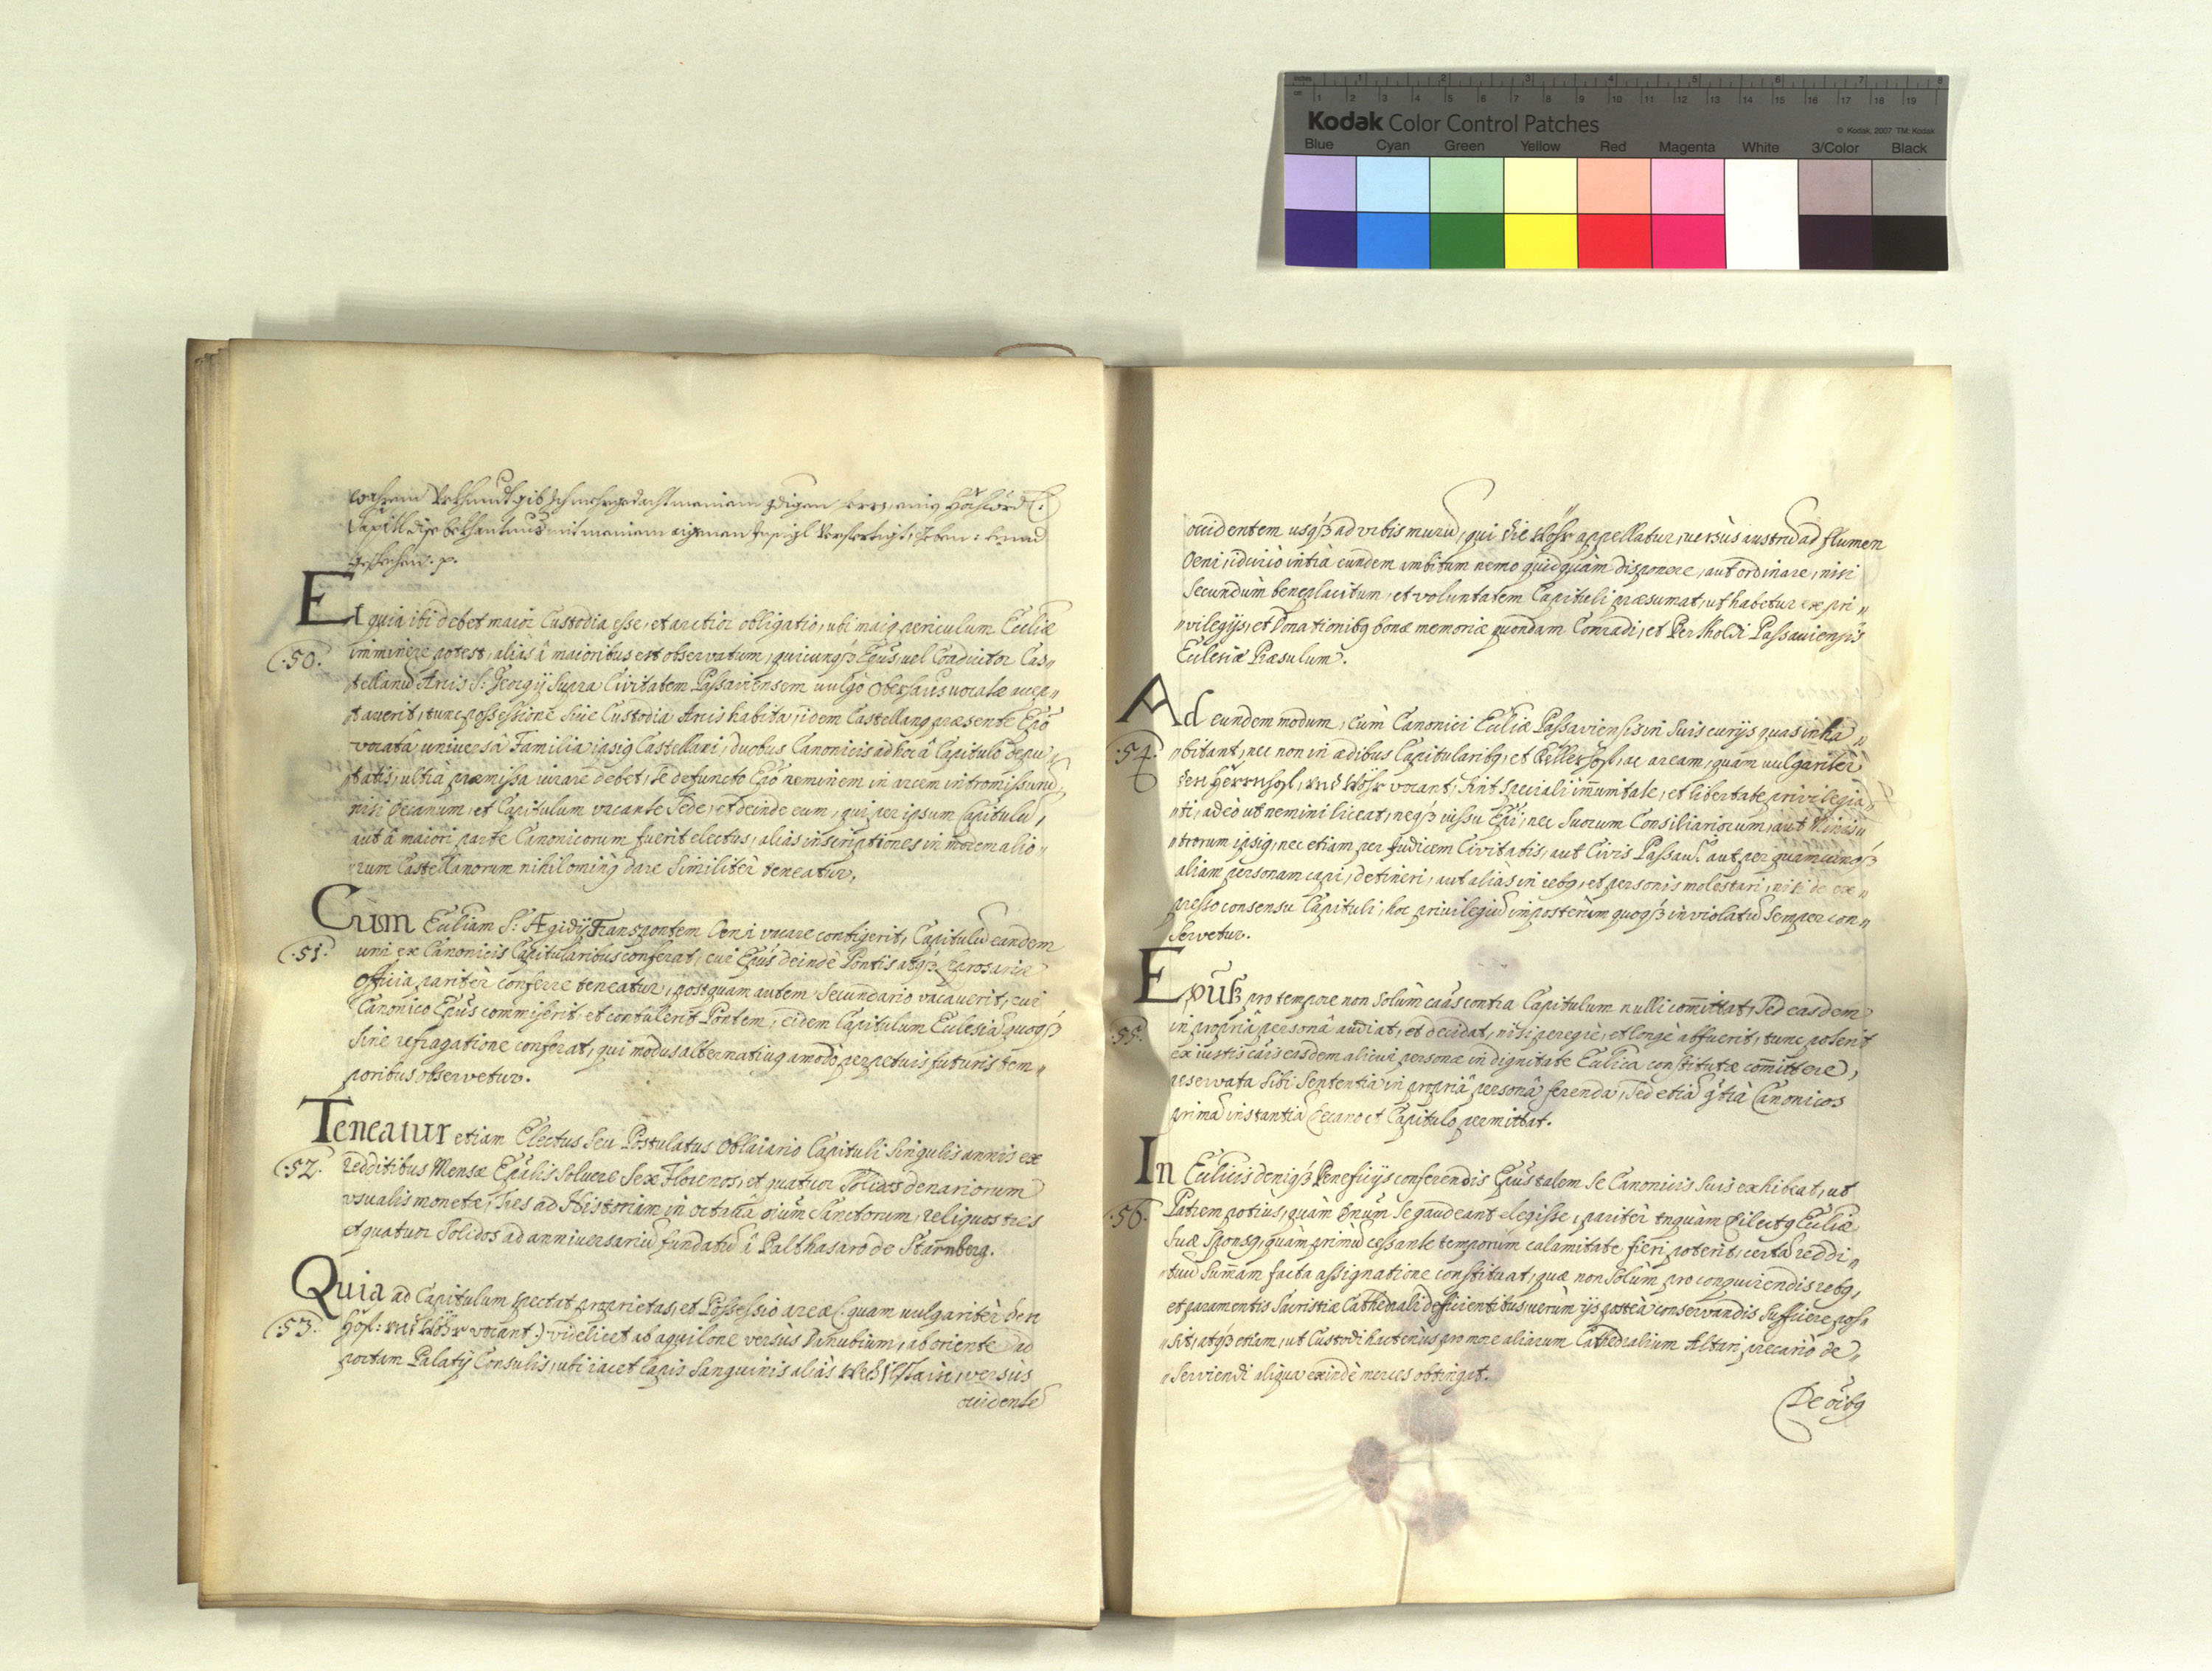 inches 1 2 3 4 5 6 7 8
cm 1 2 3 4 5 6 7 8 9 10 11 12 13 14 15 16 17 18 19
Kodak Color Control Patches
© Kodak, 2007 TM: Kodak
Blue Cyan Green Yellow Red Magenta White 3/Color Black
Capitl dise bekhantnus mit meinem aignen Insigl
geschehen. p.
Et quia ibi debet maior Custodia esse, et arctior obligatio, ubi maig periculum Eccliæ
.50. imminere potest, alias â maioribus est observatum, quicunqȝ Epus, vel Coadiutor Cas„
tellanū Arcis S: Georgij supra Civitatem Passaviensem vulgò Oberhaus vocatæ accep„
taverit, tunc possessione sive Custodia Arcis habita, idem Castellang præsente Epo
vocata universâ Familia ipsig Castellani, duobus Canonicis ad hoc â Capitulo depu„
tatis, ultra præmissa iurare debet, se defuncto Epo neminem in arcem intromissurū,
nisi Decanum, et Capitulum vacante Sede, et deinde eum, qui per ipsum Capitulū,
aut â maiori parte Canonicorum fuerit electus, alias inscriptiones in morem alio„
rum Castellanorum nihilominq dare similitèr teneatur,
Cum Eccliam S: Ægidij Trans pontem Oeni vacare contigerit, Capitulū eandem
.51. uni ex Canonicis Capitularibus conferat, cui Epus deindè Pontis atqȝ Leprosariæ
officia paritèr conferre teneatur, postquam autem secundario vacaverit, cui
Canonico Epus commiserit, et contulerit Pontem, eidem Capitulum Ecclesiā quoqȝ
sine refragatione conferat, qui modus alternativg amodò perpetuis futuris tem„
poribus observetur.
Teneatur etiam Electus seu Postulatus Oblaiario Capituli singulis annis ex
.52. redditibus Mensæ Epalis solvere sex Florenos, et quatuor Solidos denariorum
usualis monetæ, Tres ad Historiam in octava oium Sanctorum, reliquos tres
et quatuor Solidos ad anniversariū fundatū â Balthasaro de Starnberg.
Quia ad Capitulum spectat proprietas, et Possessio areæ (: quam vulgaritèr den
.53. Hof: und Wöhr vocant:) videlicet ab aquilone versùs Danubium, ab oriente ad
portam Palatij Consulis, ubi iacet lapis sanguinis aliàs versùs
occidentē
occidentem usqȝ ad urbis murū, qui die Wöhr appellatur, versùs austrū ad flumen
Oeni, idcircò intra eundem ambitum nemo quidquàm disponere, aut ordinare, nisi
secundùm beneplacitum, et voluntatem Capituli præsumat, ut habetur ex pri„
„vilegijs, et Donationibg bonæ memoriæ quondam Conradi, et Bertholdi Passaviensis
Ecclesiæ Præsulum.
Ad eundem modum, cùm Canonici Eccliæ Passaviensis in suis curijs quas inha„
.54. „bitant, nec non in ædibus Capitularibg, et Cellerhofl, ac aream, quam vulgaritèr
den Herrnhof, und Wöhr vocant, sint speciali immunitate, et libertate privilegia„
„ti, adeò ut nemini liceat, neqȝ iussu Epi, nec suorum Consiliariorum, aut Minis„
„trorum ipsig, nec etiam per Judicem Civitatis, aut Civis Passau: aut per quamcunqȝ
aliam personam capi, detineri, aut aliàs in rebg, et personis molestari, nisi de ex„
presso consensu Capituli, hoc privilegiū imposterùm quoqȝ inviolatū semper con„
servetur.
Epus pro tempore non solùm caas contra Capitulum nulli committat, sed easdem
.55. in propriâ personâ audiat, et decidat, nisi peregrè, et longè abfuerit, tunc poterit
ex iustis cais easdem alicui personæ in dignitate Ecclica constitutæ committere,
reservata sibi sententia in propriâ personâ ferenda, sed etiā contra Canonicos
primā instantiā Decano et Capitulo permittat.
In Ecclicis deniqȝ Beneficijs conferendis Epus talem se Canonicis suis exhibeat, ut
.56. Patrem potiùs, quàm Dnum se gaudeant elegisse, paritèr tnquàm dilectg Eccliæ
suæ sponsg, quàm primū cessante temporum calamitate fieri poterit, certā reddi„
tuū summam facta assignatione constituat, quæ non solùm pro conquirendis rebg,
et paramentis sacristiæ Cathedrali deficientibus, verùm ijs posteà conservandis sufficere pos„
„sit, atqȝ etiam, ut Custodi hactenùs pro more aliarum Cathedralium Altari precariò de„
„serviendi aliqua exindè merces obtingat.
De oibg